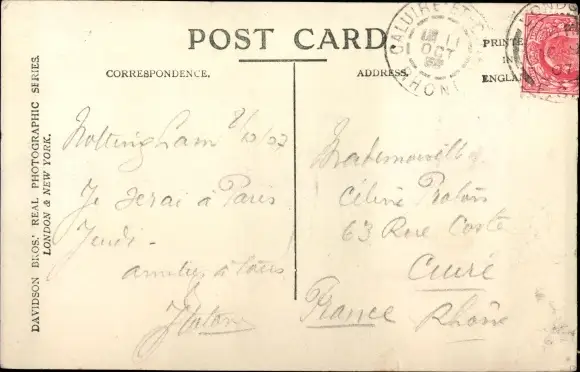 POST CARD
CORRESPONDENCE.
ADDRESS.
PRINTED
IN
ENGLAND
CALUIRE-ET-
11
OCT
RHONE
DAVIDSON BROS.' REAL PHOTOGRAPHIC SERIES.
LONDON & NEW YORK.
Nottingham 8/10/07
Je serai à Paris
Jeudi -
amitiés à tous
Mademoiselle
Céline
63 Rue Coste
Cuire
France Rhône